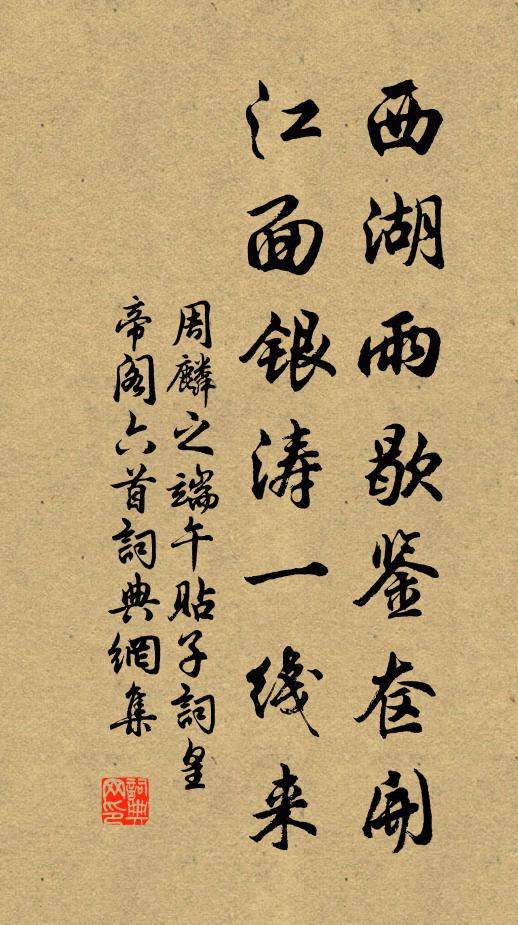 西湖雨歇鉴奁开
江面银涛一线来
周麟之端午贴子词皇
帝阁六首詞典網集
詞典
网印